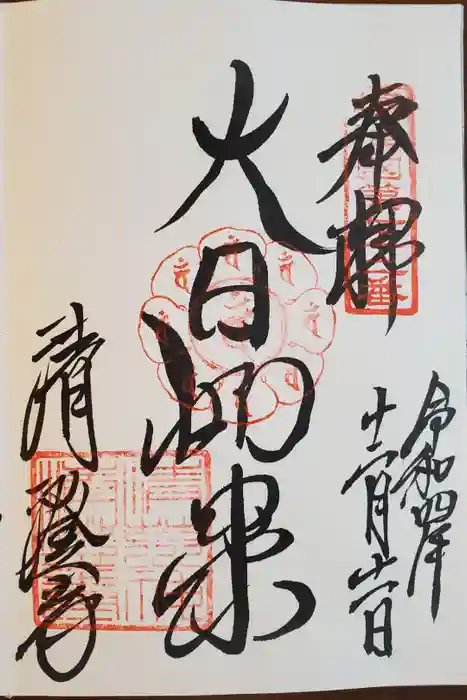 奉拝
令和四年
十二月十一日
大日如来
清澄寺